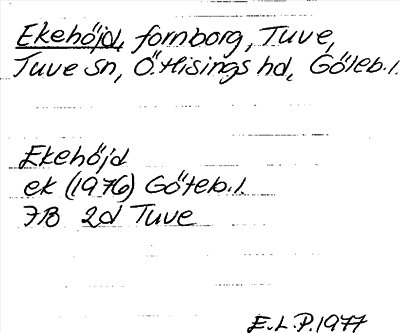 Ekehöjd, fornborg, Tuve,
Tuve sn, Ö. Hisings hd, Göteb. l.
Ekehöjd
ek (1976) Göteb. l.
7B 2d Tuve
E.L.P. 1977